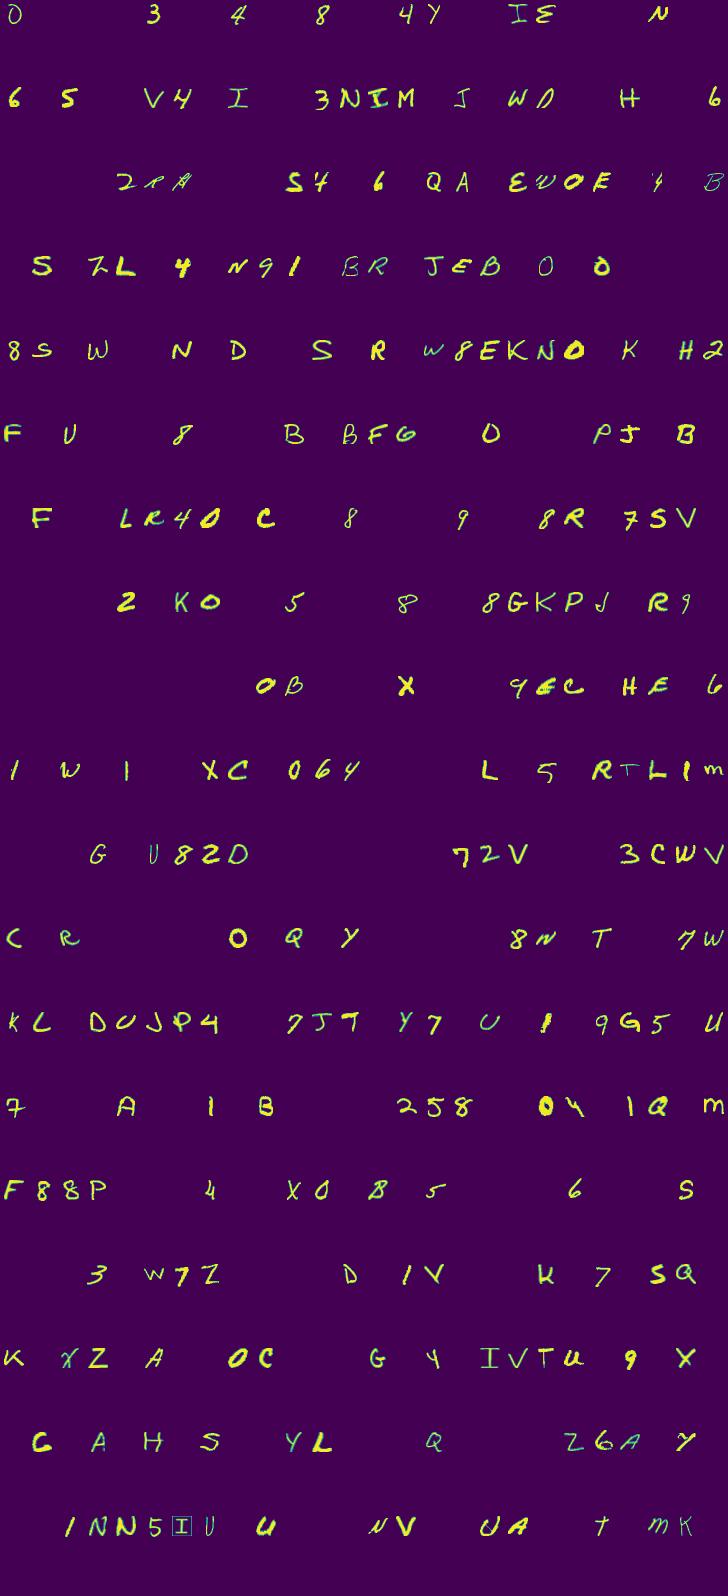 0 3 4 8 4Y IE N
6 5 V4 I 3NIM J WD H 6
2RA S4 6 QA EWOE 4 B
S ZL 4 N91 BR JEB 0 0
8S W N D S R W8EKNO K H2
F U 8 B BFG O PJ B
F LR40 C 8 9 8R 7SV
2 KO 5 8 8GKPJ R9
0B X 9EC HE 6
1 W 1 XC 064 L 5 RTL1M
G U82D 72V 3CWV
C R O QY 8N T 7W
KL DUJP4 7JT Y7 U 1 9G5 U
7 A 1 B 258 04 1Q M
F88P 4 X0 B 5 6 S
3 W7Z D 1V K 7 SQ
K XZ A OC G Y IVTU 9 X
G A H S YL Q Z6A Y
1NN5IU U NV UA T MK